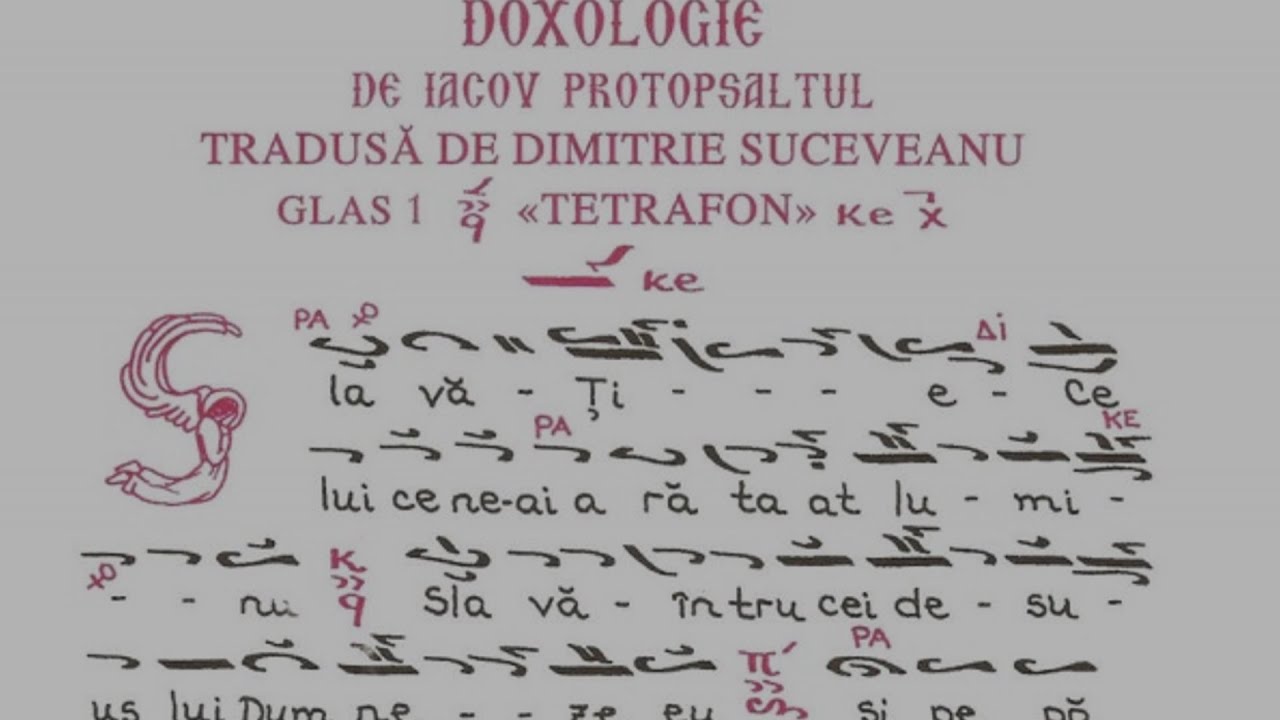 DOXOLOGIE
DE IACOV PROTOPSALTUL
TRADUSĂ DE DIMITRIE SUCEVEANU
GLAS 1 «TETRAFON» Ke
Ke
PA Δi
Sla vă - Ți - - - e - Ce
PA KE
lui ce ne-ai a ră ta at lu - mi -
K
- - nu Sla vă - în tru cei de - su -
PA
us lui Dum ne - - ze eu și pe pă